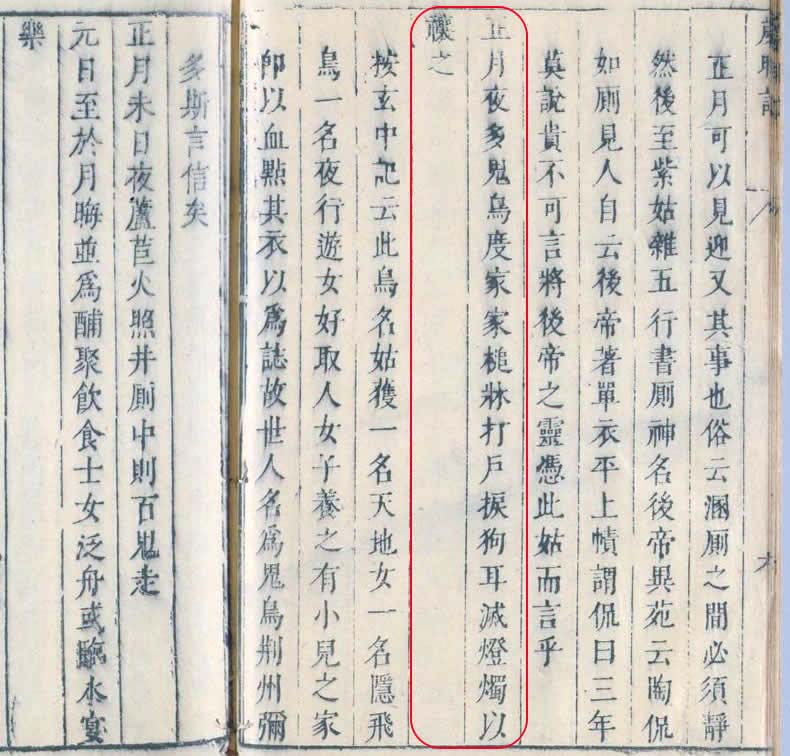 歲時記
六
正月可以見迎又其事也俗云溷厠之間必須靜
然後至紫姑雜五行書厠神名後帝異苑云陶侃
如厠見人自云後帝著單衣平上幘謂侃曰三年
莫說貴不可言將後帝之靈憑此姑而言乎
正月夜多鬼鳥度家家槌牀打戶捩狗耳滅燈燭以
禳之
按玄中記云此鳥名姑獲一名天地女一名隱飛
鳥一名夜行遊女好取人女子養之有小兒之家
卽以血點其衣以爲誌故世人名爲鬼鳥荆州彌
多斯言信矣
正月未日夜蘆苣火照井厠中則百鬼走
元日至於月晦並爲酺聚飲食士女泛舟或臨水宴
樂